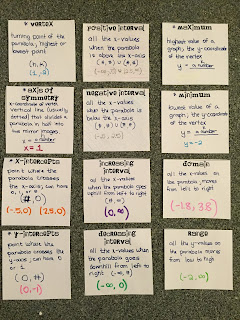 * vertex
turning point of the
parabola; highest or
lowest point
(h, k)
(1, -2)
positive interval
all the x-values
when the parabola
is above the x-axis
(#, #) ∪ (#, #)
* maximum
highest value of a
graph; the y-coordinate
of the vertex
y = a number
*axis of
symmetry
x-coordinate of vertex.
vertical line (usually
dotted) that divides a
parabola in half into
two mirror images.
x = a number
x = 1
negative interval
all the x-values
when the parabola is
below the x-axis
(#, #)
* minimum
lowest value of a
graph; the y-coordinate
of the vertex
y = a number
y = -2
* x-intercepts
point where the
parabola crosses
the x-axis; can have
0, 1 or 2
(#, 0)
(-.5, 0) (2.5, 0)
increasing
interval
all the x-values when
the parabola goes
uphill from left to
right
(#, ∞)
(0, ∞)
domain
all the x-values on
the parabola, moves
from left to right
(-1.8, 3.8)
* y-intercepts
point where the
parabola crosses the
y-axis; can have 0
or 1
(0, #)
(0, -1)
decreasing
interval
all the x-values when
the parabola goes
downhill from left to
right (-∞, #)
(-∞, 0)
Range
all the y-values on
the parabola moves
from low to high
(-2, ∞)